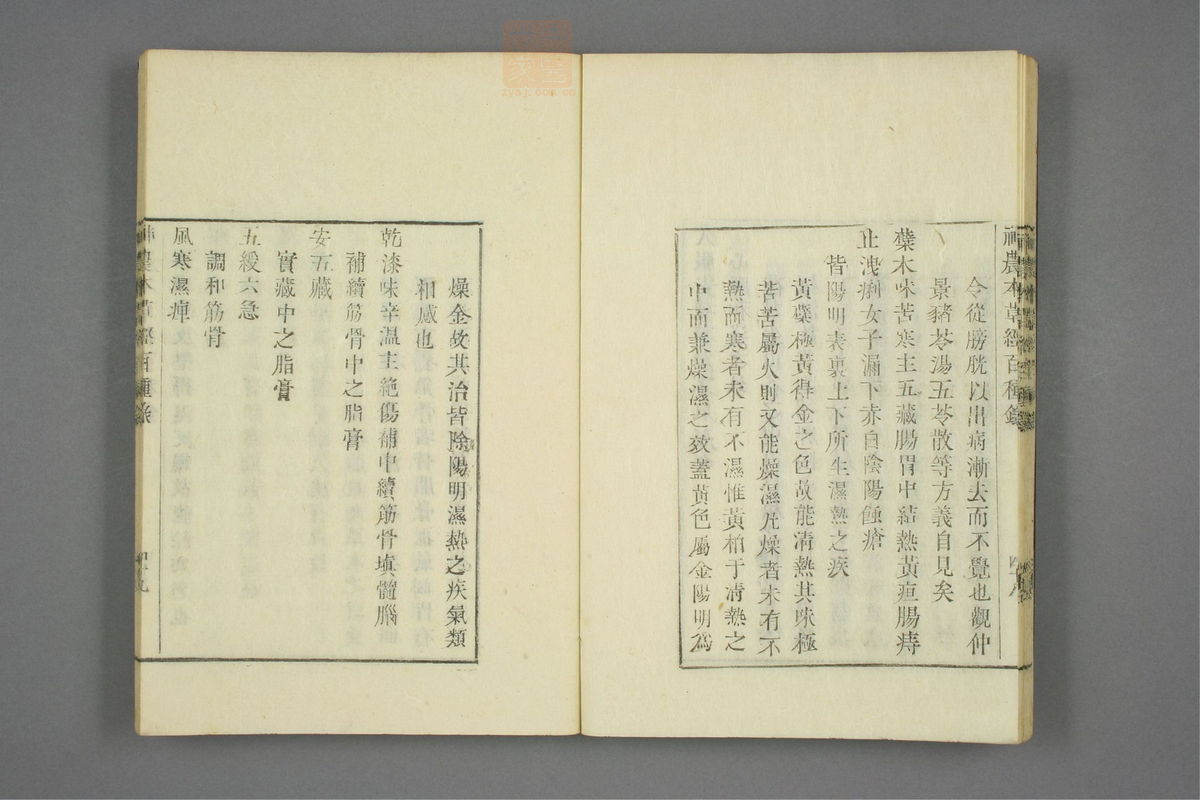 神農本草經百種錄
四十八
令從膀胱以出病漸去而不覺也觀仲
景豬苓湯五苓散等方義自見矣
蘗木味苦寒主五藏腸胃中結熱黃疸腸痔
止洩痢女子漏下赤白陰陽蝕瘡
皆陽明表裏上下所生濕熱之疾
黃蘗極黃得金之色故能清熱其味極
苦苦屬火則又能燥濕凡燥者未有不
熱而寒者未有不濕惟黃柏于清熱之
中而兼燥濕之效蓋黃色屬金陽明為
燥金故其治皆除陽明濕熱之疾氣類
相感也
乾漆味辛溫主絕傷補中續筋骨塡髓腦
補續筋骨中之脂膏
安五藏
實藏中之脂膏
五緩六急
調和筋骨
風寒濕痺
神農本草經百種錄
四十九
zysj.com.cn